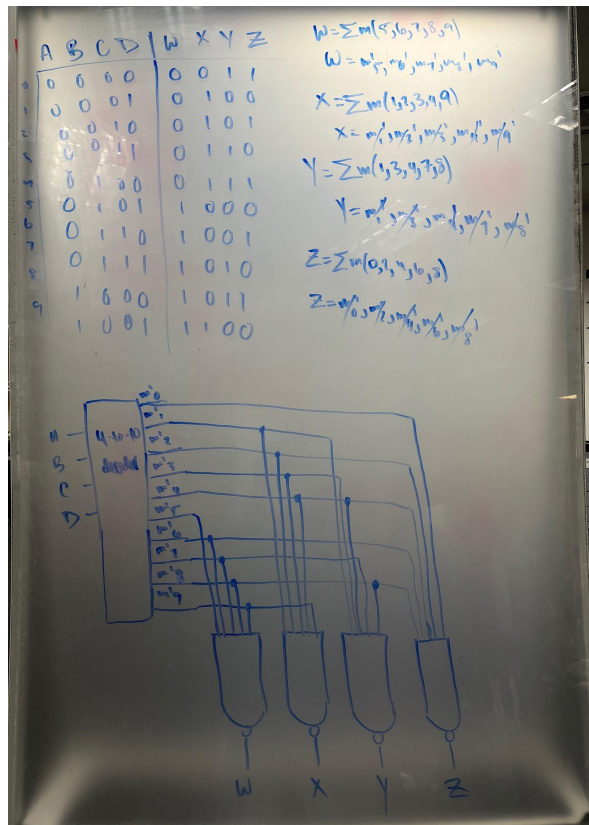 A B C D | W X Y Z
0 0 0 0 0 0 0 1 1
1 0 0 0 1 0 1 0 0
2 0 0 1 0 0 1 0 1
3 0 0 1 1 0 1 1 0
4 0 1 0 0 0 1 1 1
5 0 1 0 1 1 0 0 0
6 0 1 1 0 1 0 0 1
7 0 1 1 1 1 0 1 0
8 1 0 0 0 1 0 1 1
9 1 0 0 1 1 1 0 0
W=∑m(5,6,7,8,9)
W=m'5,m6',m7',m8',m9'
X=∑m(1,2,3,4,9)
X=m1',m2',m3',m4',m9'
Y=∑m(1,3,4,7,8)
Y=m1',m3',m4',m7',m8'
Z=∑m(0,2,4,6,8)
Z=m0',m2',m4',m6',m8'
A
B
C
D
4-to-10
m'0
m'1
m'2
m'3
m'4
m'5
m'6
m'7
m'8
m'9
W X Y Z